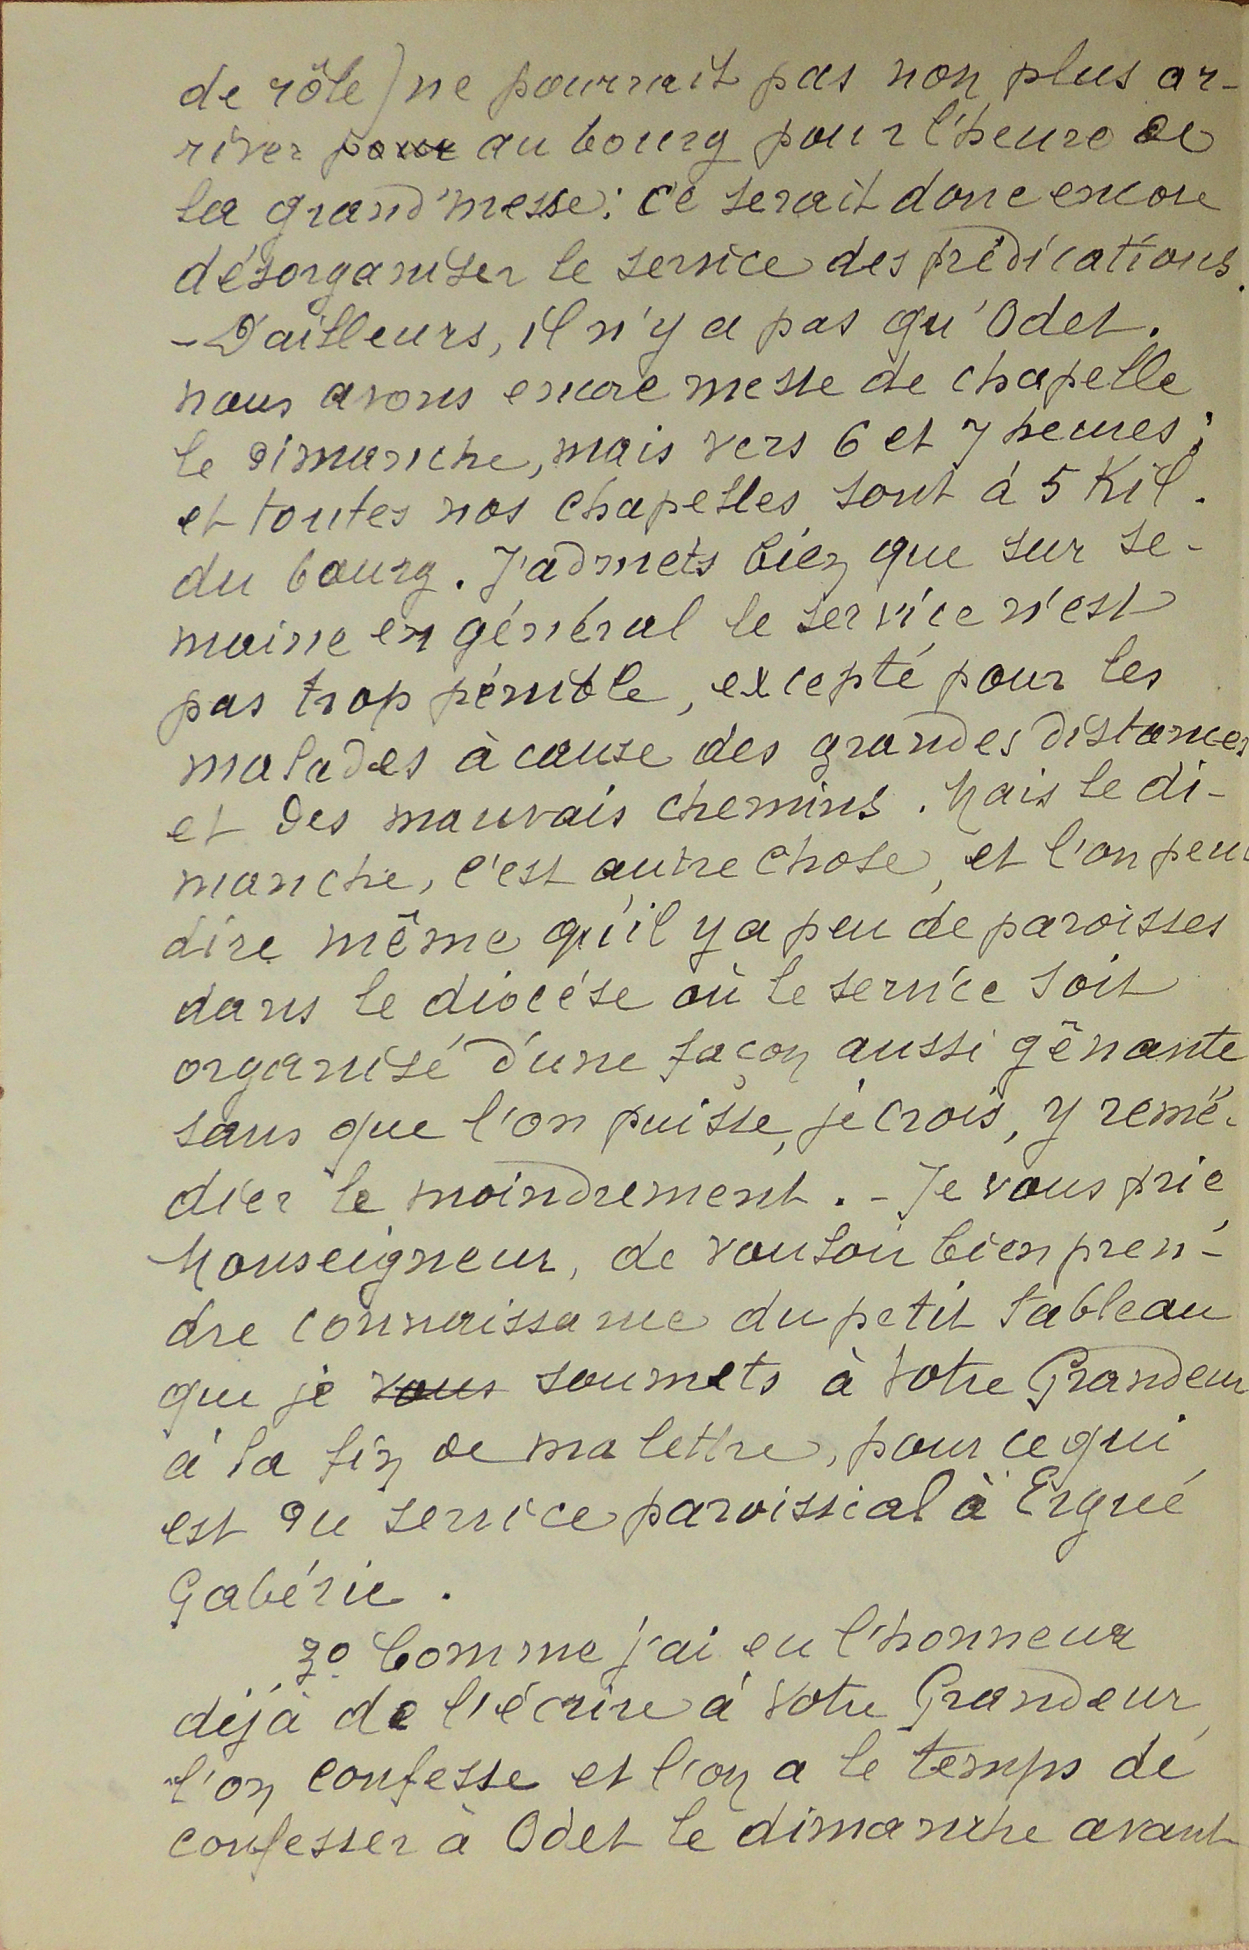 de rôle) ne pourrait pas non plus ar-
river pour au bourg pour l'heure de
la grand'messe : ce serait donc encore
désorganiser le service des prédications.
- D'ailleurs, il n'y a pas qu'Odet.
nous avons encore messe de chapelle
le dimanche, mais vers 6 et 7 heures ;
et toutes nos chapelles sont à 5 Kil.
du bourg. J'admets bien que sur se-
maine en général le service n'est
pas trop pénible, excepté pour les
malades à cause des grandes distances
et des mauvais chemins. Mais le di-
manche, c'est autre chose, et l'on peut
dire même qu'il y a peu de paroisses
dans le diocèse où le service soit
organisé d'une façon aussi gênante
sans que l'on puisse, je crois, y remé-
dier le moindrement. - Je vous prie,
Monseigneur, de vouloir bien pren-
dre connaissance du petit tableau
que je vous soumets à votre Grandeur
à la fin de ma lettre, pour ce qui
est du service paroissial à Ergué
Gabéric.
3º Comme j'ai eu l'honneur
déjà de l'écrire à votre Grandeur,
l'on confesse et l'on a le temps de
confesser à Odet le dimanche avant